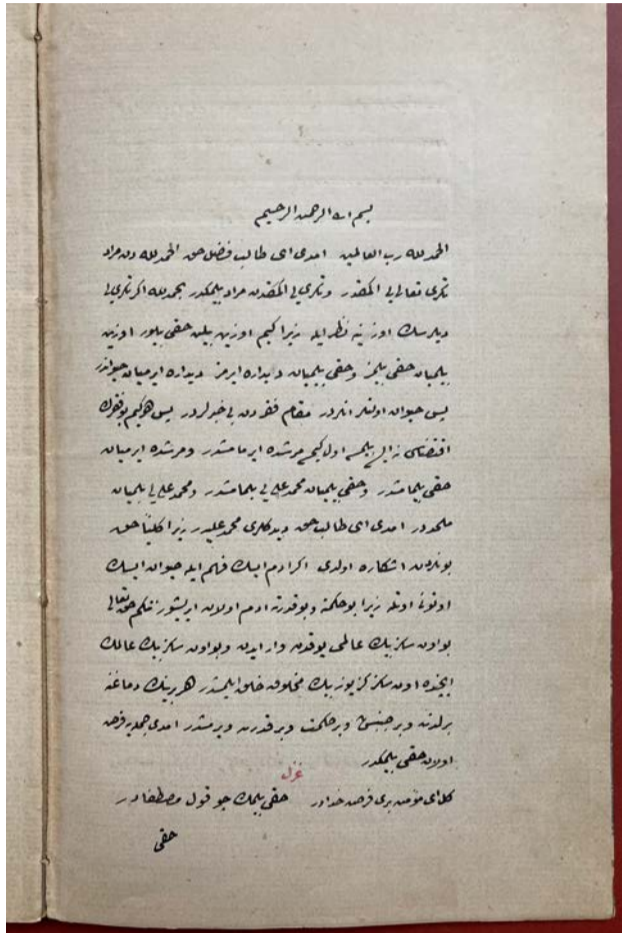 بسم الله الرحمن الرحيم
الحمد لله رب العالمين امدى اى طالب فضل حق الحمد لله دن مراد
تكرى تعالى يى اكمقدر وتكرى يى اكمقدن مراد بيلمكدر بحمد لله اكر تكرى يى
ديلرسك اوزيڭه نظر ايله زيرا كيم اوزين بيلن حقى بيلور اوزين
بيلميان حقى بيلمز وحقى بيلميان ديداره ايرمز ديداره ايرميان حيواندر
پس حيوان اولنلر انلردر مقام فقردن بى خبرلردر پس هر كيم بو فقرك
اول كيمسه مرشده ايرمامشدر ومرشده ايرميان
حقى بيلمامشدر وحقى بيلميان محمد على يى بيلمامشدر ومحمد على يى بيلميان
ملحددر امدى اى طالب حق ديدكلرى محمد عليدر زيرا كليّا حق
بونلردن اشكاره اولدى اكر ادم ايسك فهم ايله حيوان ايسك
اوتونه اوتله زيرا بو حكمته وبو قدرته ادم اولان ايريشور نتكم حق تعالى
بو اون سكز بيك عالمى يوقدن وار ايدن وبو اون سكز بيك عالمك
ايچنده اون سكز كز يوز بيك مخلوق خلق ايلمشدر هر برينك دماغنه
برلذت وبر جنبش وبر حكمت وبر قدرت ويرمشدر امدى جمله يه فرض
اولان حقى بيلمكدر
غزل
كل اى مؤمن برى فرض خدادر حقى بيلمك چو قول مصطفادر
حقى